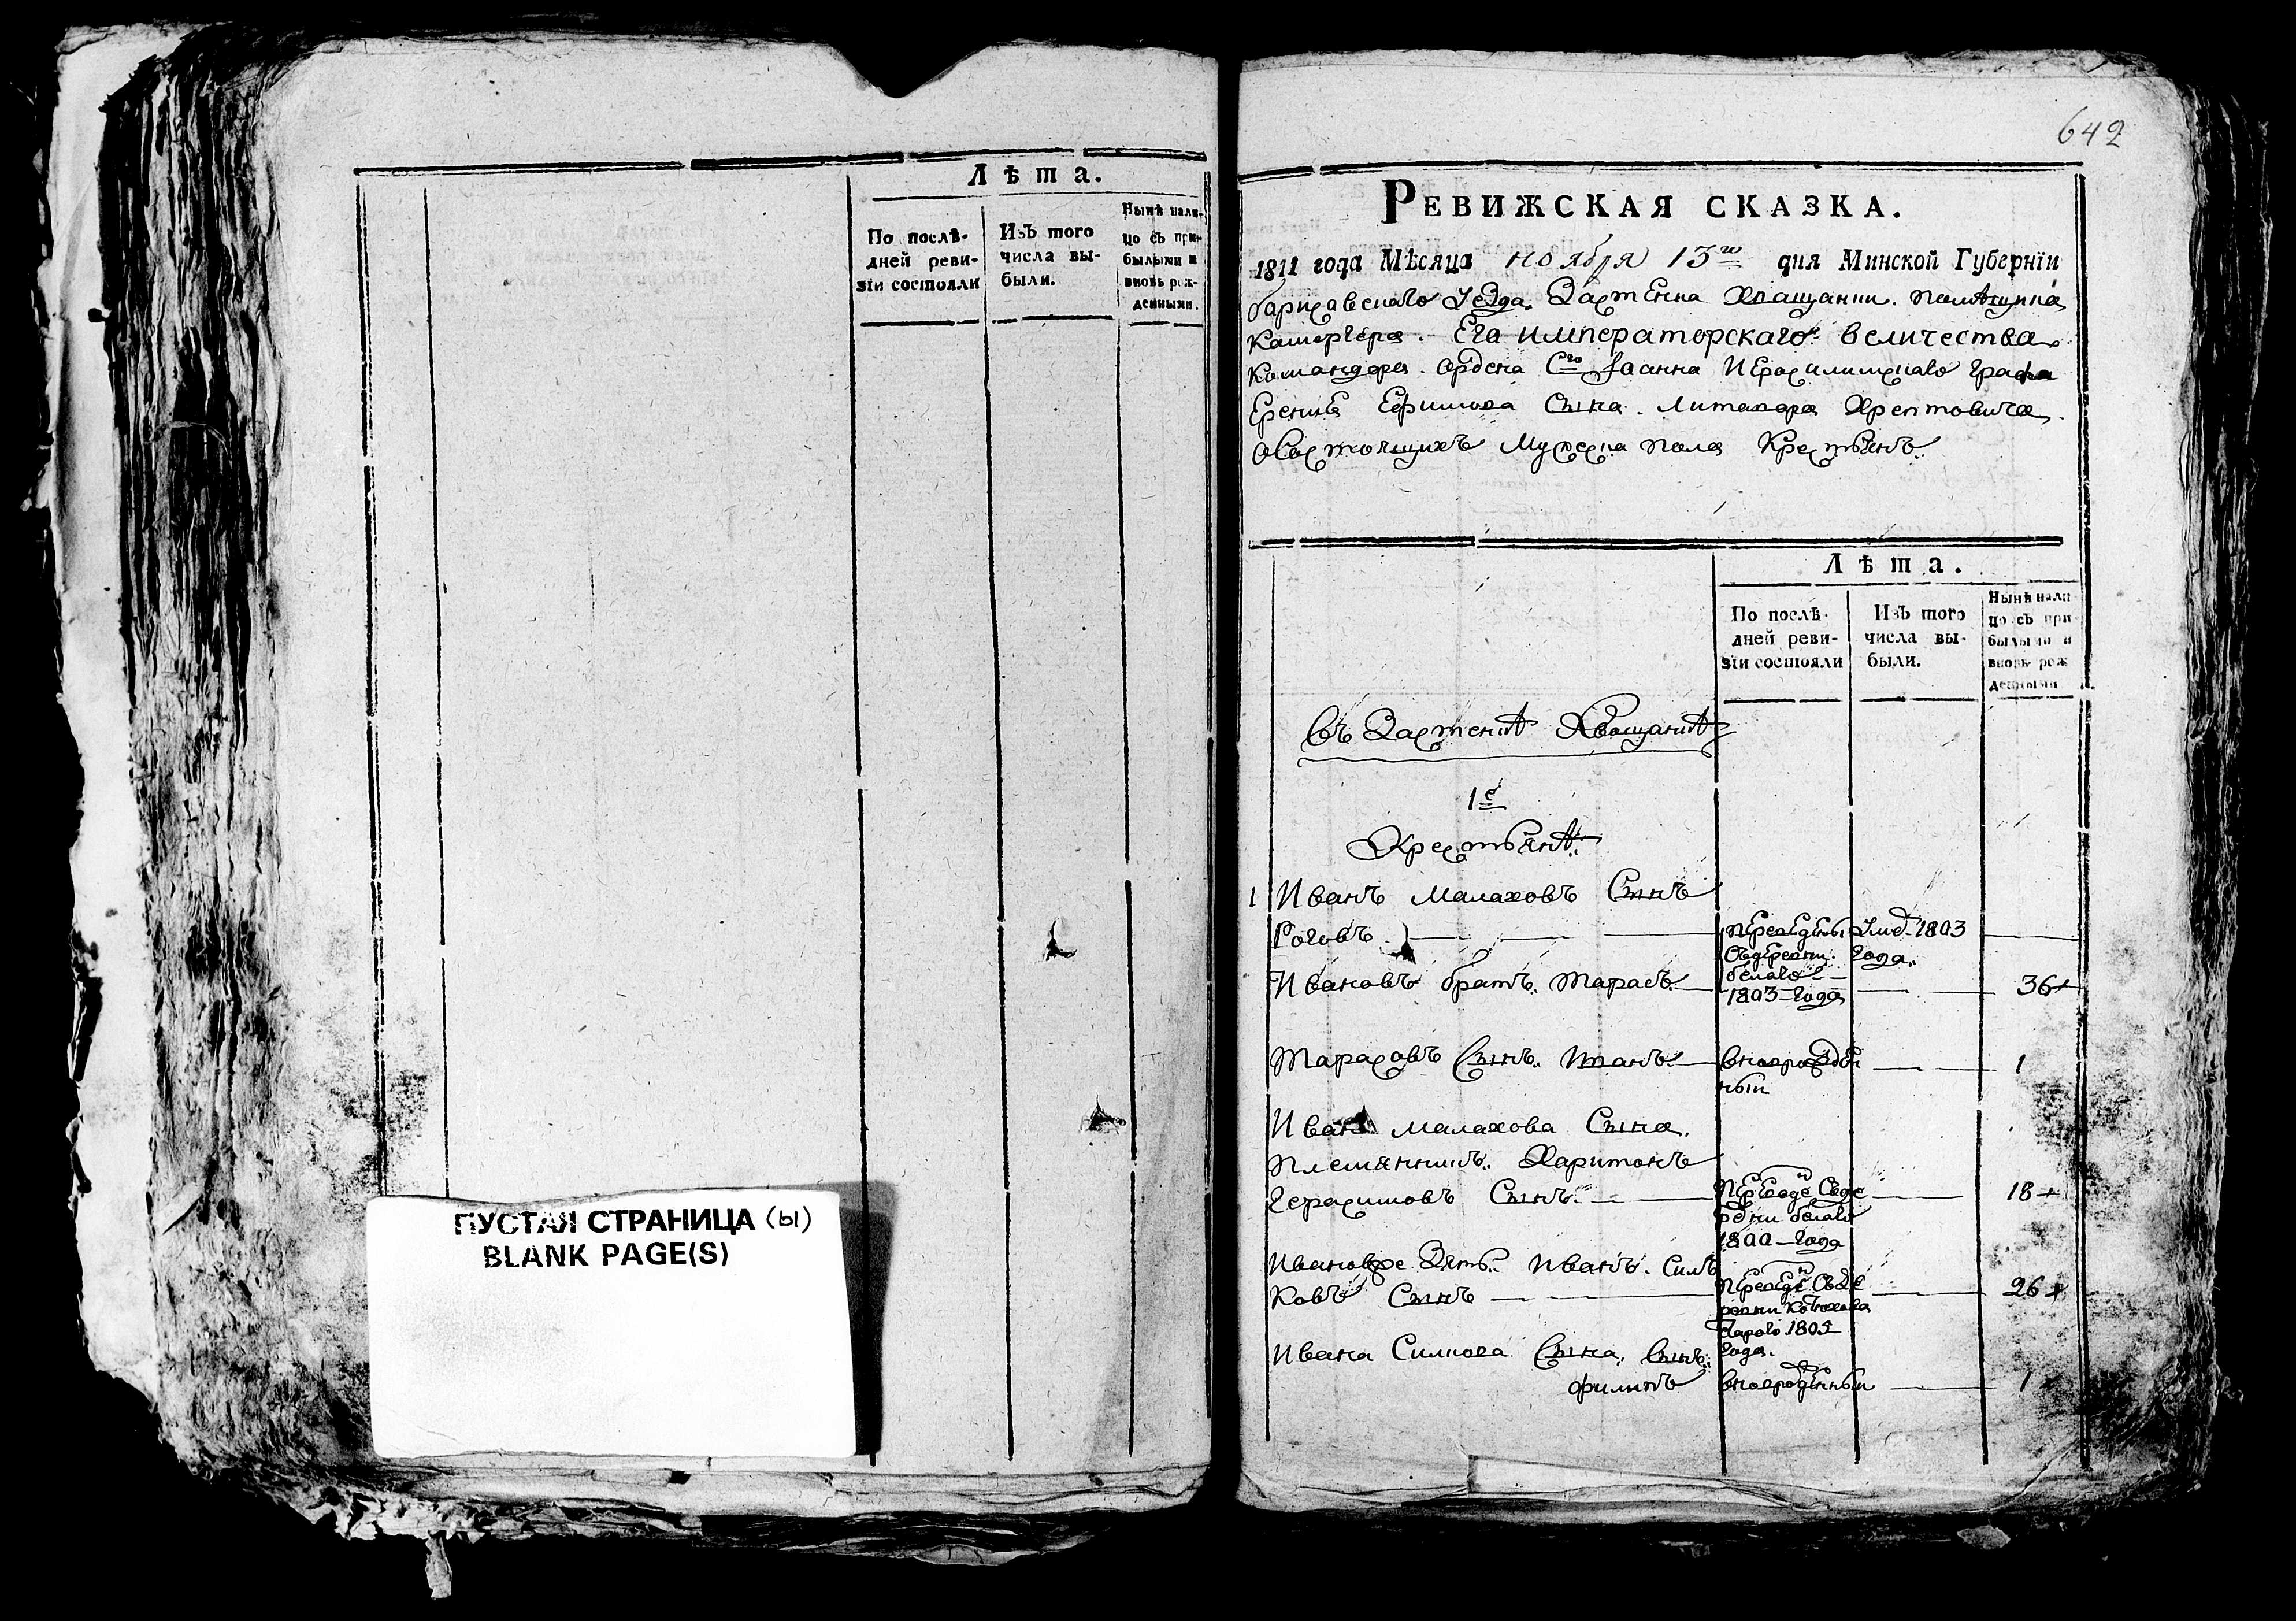 Лѣта.
По послѣ-
дней реви-
зіи состояли
Изъ того
числа вы-
были.
Нынѣ нали-
цо съ при-
былыми и
вновь рож-
денными.
ПУСТАЯ СТРАНИЦА (Ы)
BLANK PAGE(S)
642
РЕВИЖСКАЯ СКАЗКА.
1811 года Мѣсяца ноября 13го дня Минской Губерніи
Уезда Застенка помѣщика
Камергера Его императорскаго величества
Командора Ордена Сго Іоанна графа
Сына Литавора Хрептовича
мужеска пола Крестьянъ
Лѣта.
По послѣ-
дней реви-
зіи состояли
Изъ того
числа вы-
были.
Нынѣ нали-
цо съ при-
былыми и
вновь рож
денными
Въ Застенкѣ Хвощанкѣ
1е
Крестьянѣ
1 Иванъ Малаховъ Сынъ
Роговъ
переведены
Съдеревни
белаго
1803 года
Умеръ 1803
года
Ивановъ братъ Тарасъ 36
Тарасовъ Сынъ вноврожден
ный
1
Малахова Сына
племянникъ Харитонъ
Герасимовъ Сынъ
переведен Съде
ревни белаго
1800 года
18
Зять Иванъ Силь
ковъ Сынъ
переведен Съде
ревни
Стараго 1805
года
26
Ивана Силкова Сына Сынъ
филипъ вноврожденный 1